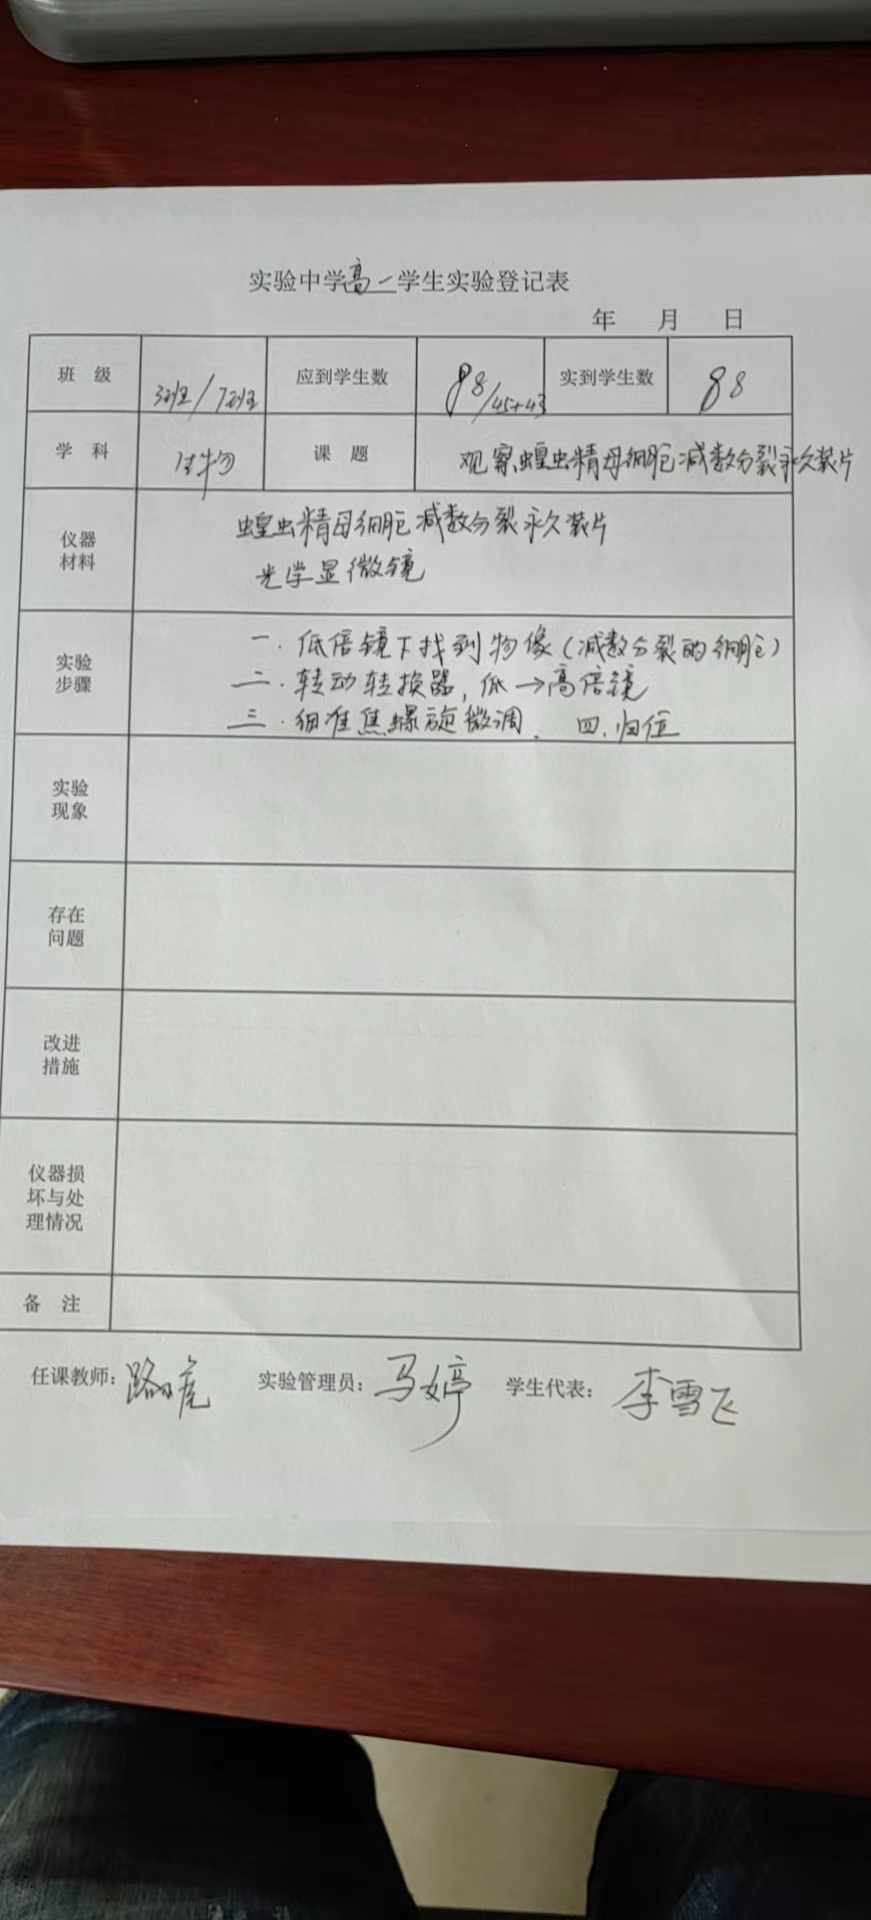 实验中学高一学生实验登记表
年 月 日
班 级 3班/7班 应到学生数 88/45+43 实到学生数 88
学 科 生物 课 题 观察蝗虫精母细胞减数分裂永久装片
仪器材料 蝗虫精母细胞减数分裂永久装片
光学显微镜
实验步骤 一.低倍镜下找到物像(减数分裂的细胞)
二.转动转换器,低→高倍镜
三.细准焦螺旋微调. 四.归位
实验现象
存在问题
改进措施
仪器损坏与处理情况
备 注
任课教师: 实验管理员:马婷 学生代表:李雪飞